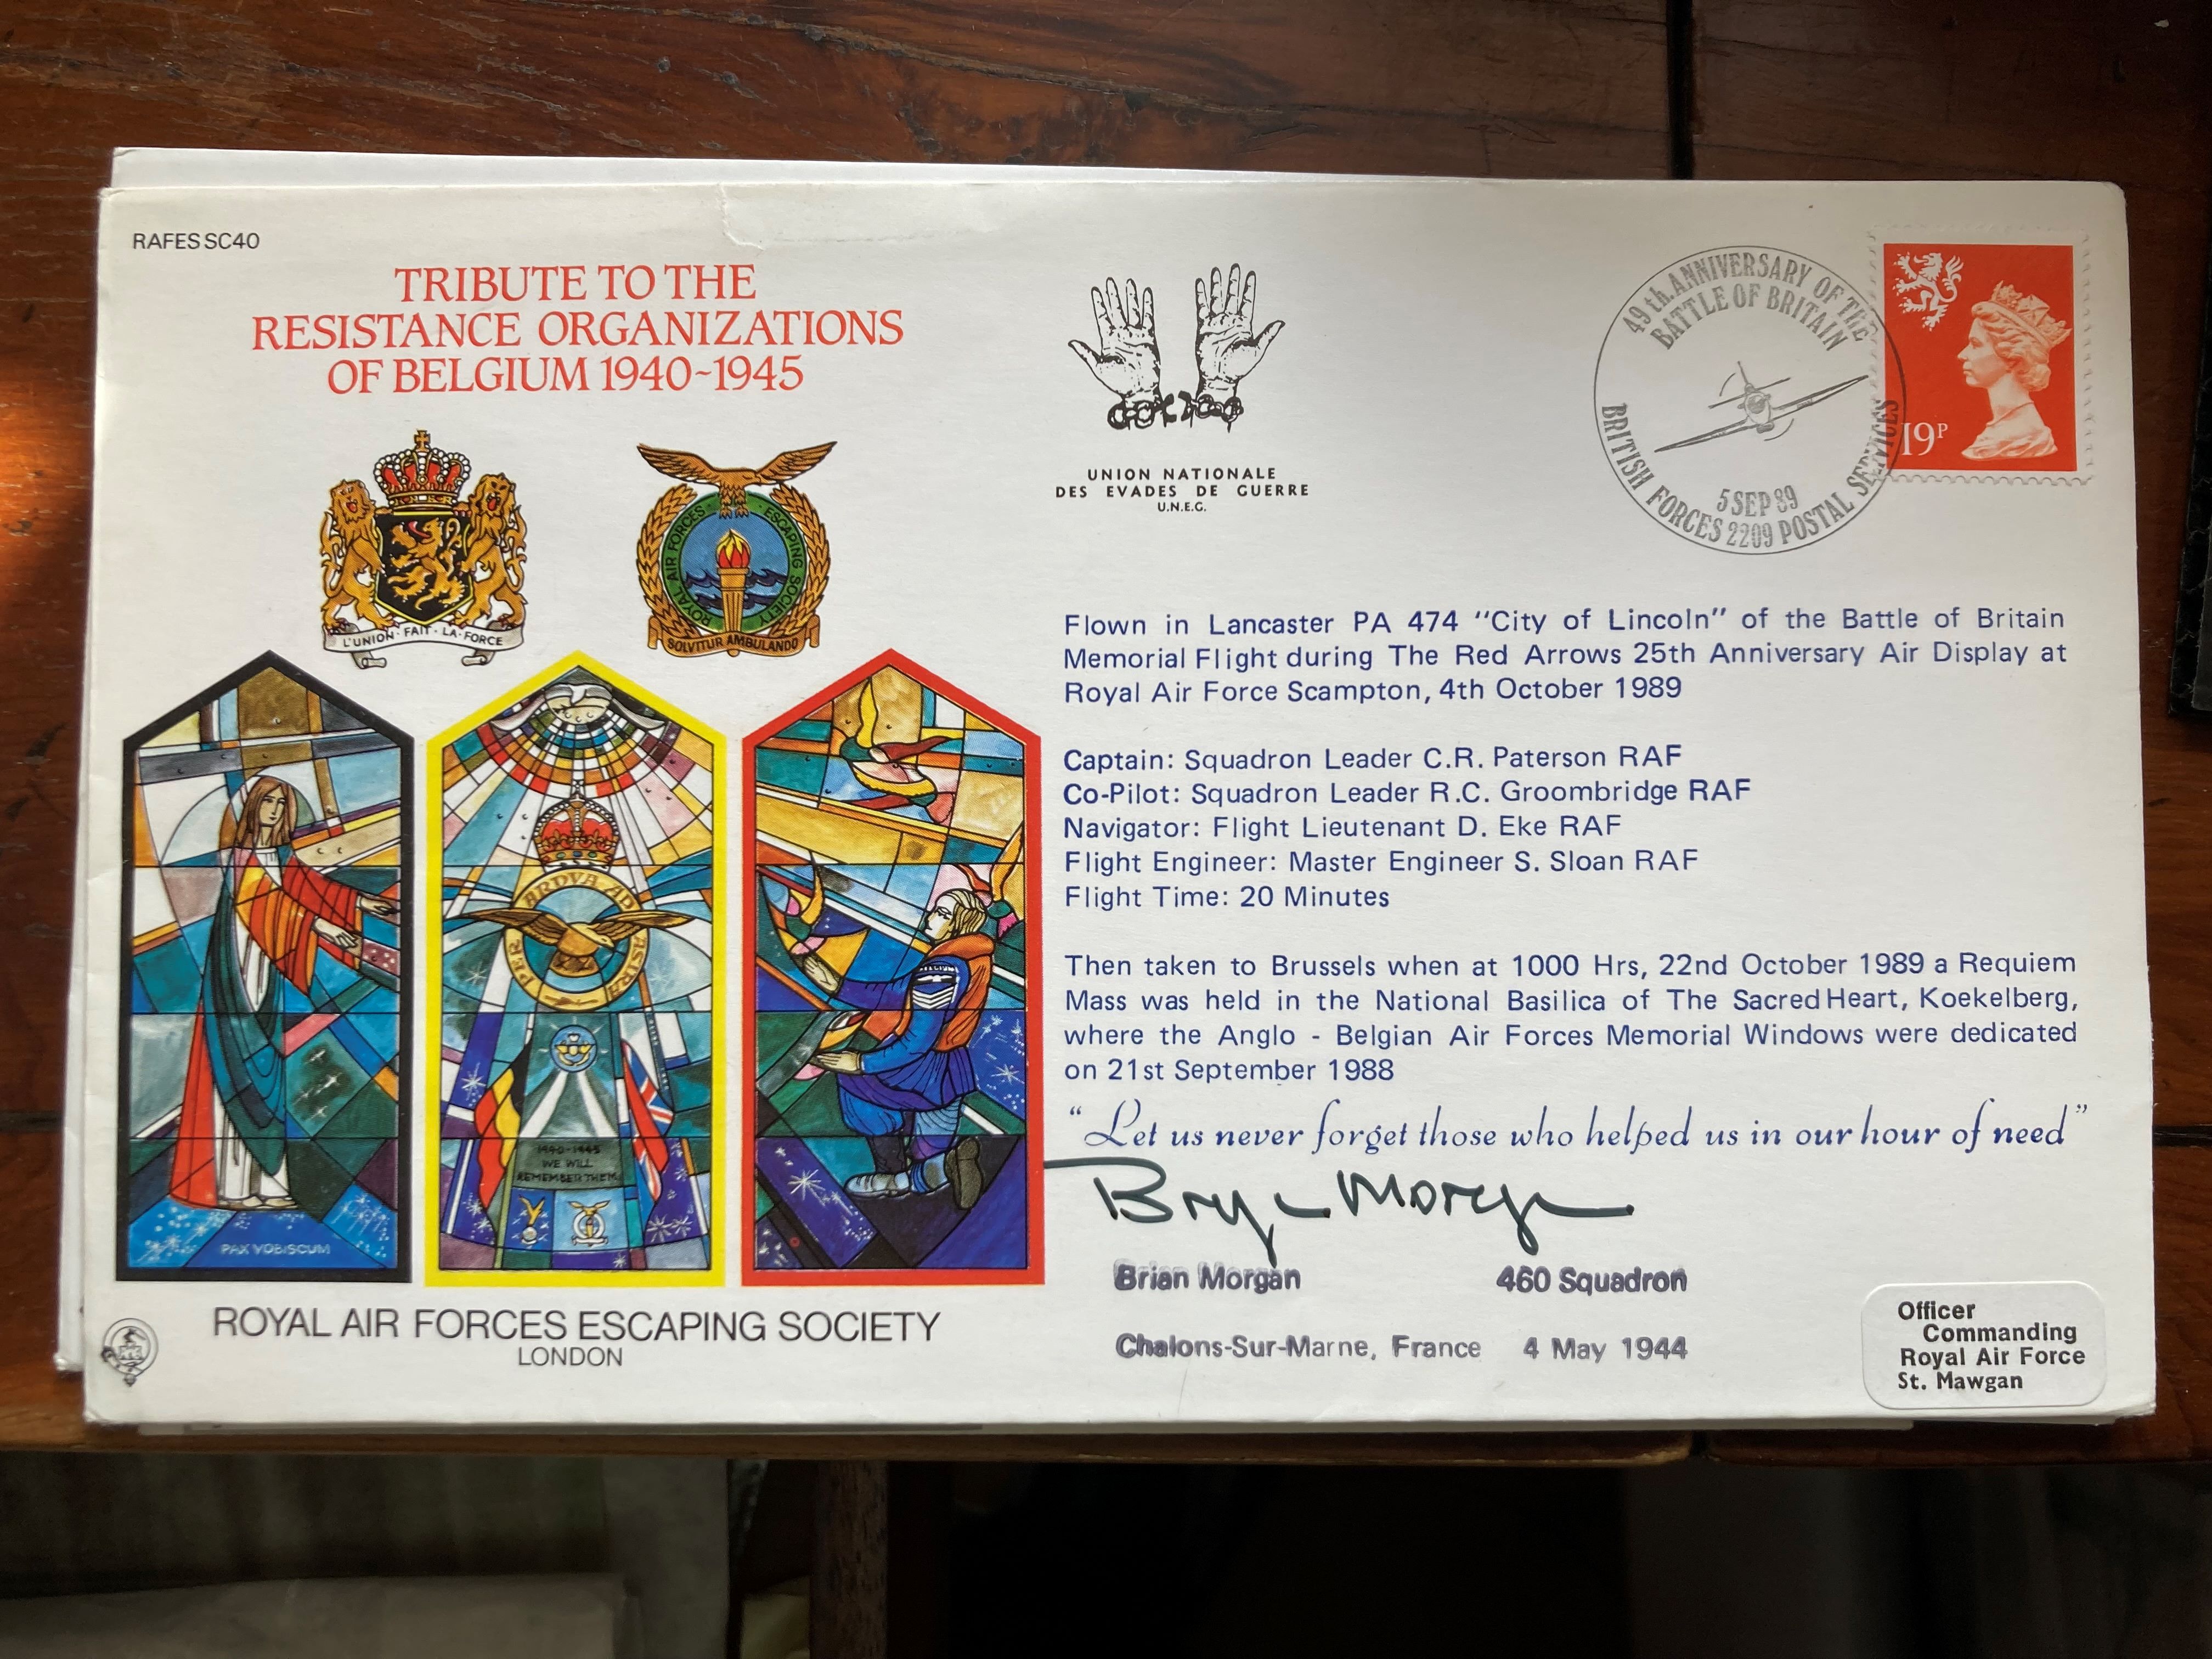 RAFES SC40
TRIBUTE TO THE
RESISTANCE ORGANIZATIONS
OF BELGIUM 1940~1945
L'UNION·FAIT·LA·FORCE
ROYAL AIR FORCES · ESCAPING SOCIETY
SOLVITUR AMBULANDO
UNION NATIONALE
DES EVADES DE GUERRE
U.N.E.G.
49th. ANNIVERSARY OF THE
BATTLE OF BRITAIN
5 SEP 89
BRITISH FORCES 2209 POSTAL SERVICES
19P
Flown in Lancaster PA 474 "City of Lincoln" of the Battle of Britain
Memorial Flight during The Red Arrows 25th Anniversary Air Display at
Royal Air Force Scampton, 4th October 1989
Captain: Squadron Leader C.R. Paterson RAF
Co-Pilot: Squadron Leader R.C. Groombridge RAF
Navigator: Flight Lieutenant D. Eke RAF
Flight Engineer: Master Engineer S. Sloan RAF
Flight Time: 20 Minutes
Then taken to Brussels when at 1000 Hrs, 22nd October 1989 a Requiem
Mass was held in the National Basilica of The Sacred Heart, Koekelberg,
where the Anglo - Belgian Air Forces Memorial Windows were dedicated
on 21st September 1988
"Let us never forget those who helped us in our hour of need"
PER ARDVA AD ASTRA
1940-1945
WE WILL
REMEMBER THEM
PAX VOBISCUM
Bryan Morgan
Brian Morgan 460 Squadron
Chalons-Sur-Marne, France 4 May 1944
ROYAL AIR FORCES ESCAPING SOCIETY
LONDON
Officer
Commanding
Royal Air Force
St. Mawgan